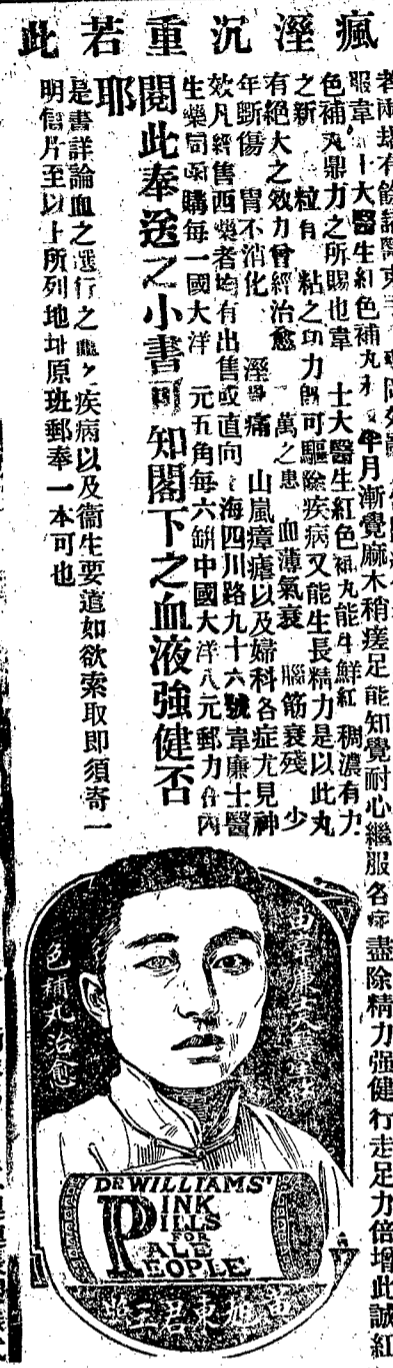 瘋溼沉重若此
者兩 有餘諸醫束手
服韋 士大醫生紅色補丸 年月漸覺麻木稍瘥足能知覺耐心繼服各症盡除精力强健行走足力倍增此誠紅
色補丸鼎力之所賜也韋 士大醫生紅色補丸能生鮮紅 稠濃有力
之新 粒有 粘之功力既可驅除疾病又能生長精力是以此丸
有絕大之效力曾經治愈 萬之患 血薄氣衰 腦筋衰殘 少
年斷傷 胃不消化 溼 痛 山嵐瘴瘧以及婦科各症尤見神
效凡經售西藥者均有出售或直向 海四川路九十六號韋廉士醫
生藥局函購每一 國大洋 元五角每六 中國大洋八元郵力在內
閱此奉送之小書可知閣下之血液強健否
耶
是書詳論血之運行之 疾病以及衞生要道如欲索取即須寄一
明信片至以上所列地址原班郵奉一本可也
色補丸治愈
DR WILLIAMS'
PINK
PILLS
FOR
PALE
PEOPLE